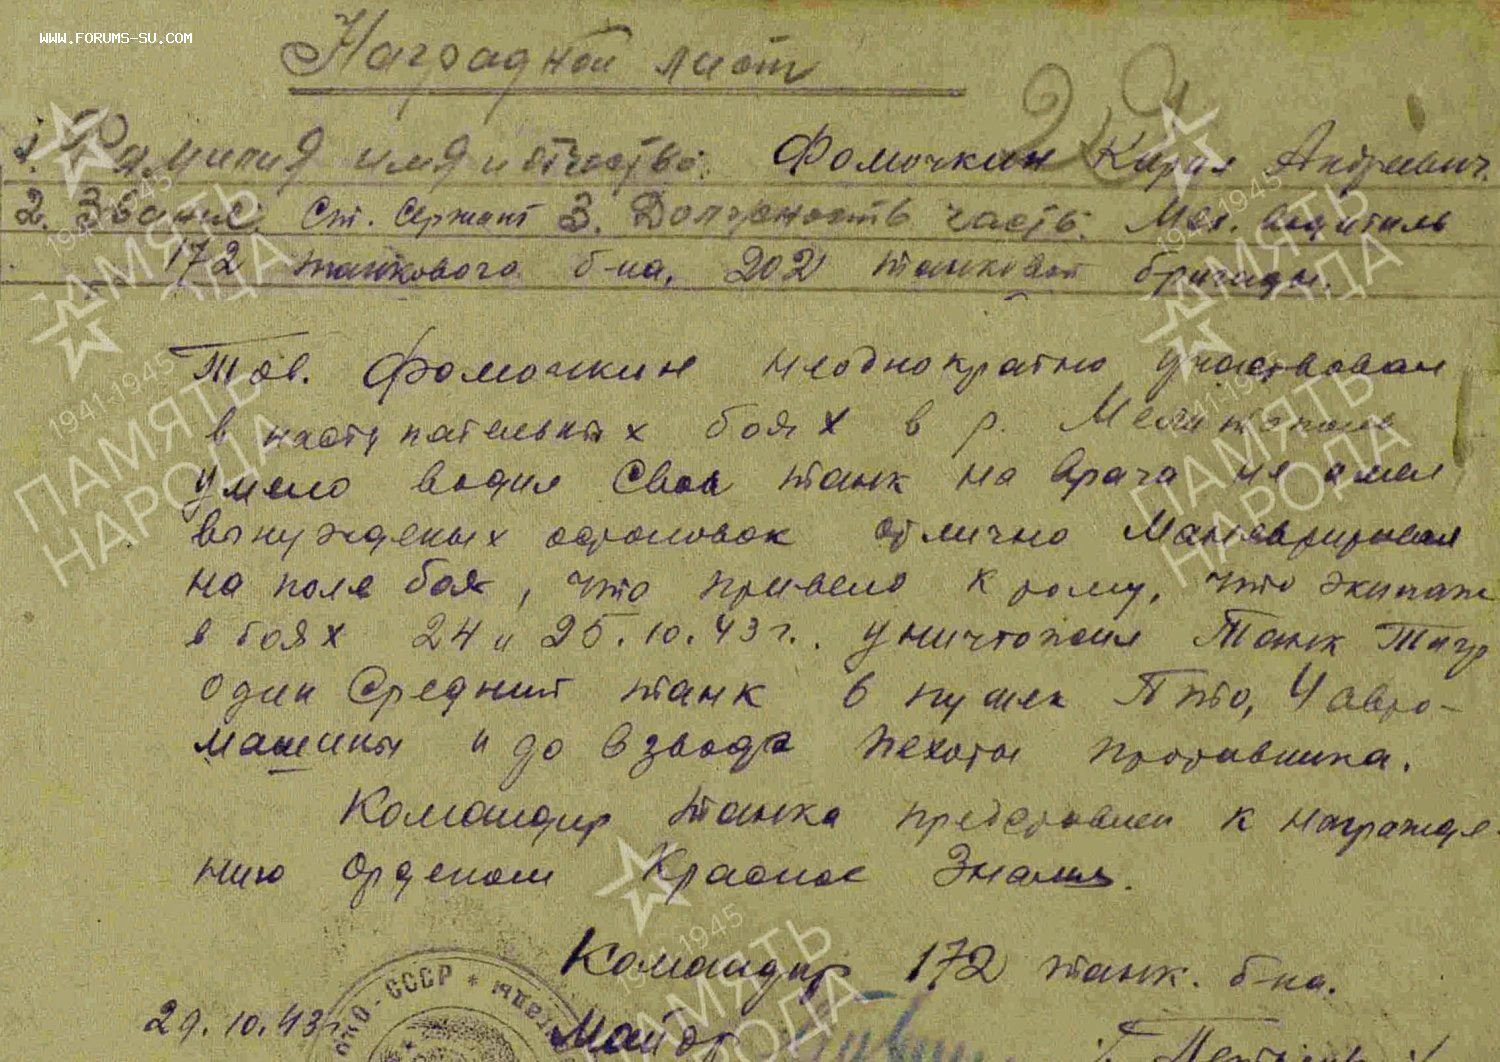 WWW.FORUMS-SU.COM
Наградной лист
1. Фамилия имя и отчество: Фомочкин Андреевич.
2. Звание. Ст. Сержант 3. Должность часть: Мех. водитель
172 танкового б-на, 202 танковой бригады.
Тов. Фомочкин неоднократно участвовал
в наступательных боях в р. Мелитополь
умело водил свой танк на врага не имел
вынужденых остановок отлично Маневрировал
на поле боя, что привело к тому, что экипаж
в боях 24 и 25.10.43г. уничтожил Танк Тигр
один Средний танк 6 пушек ПТО, 4 авто-
машины и до взвода пехоты противника.
Командир танка представлен к награжде-
нию орденом Красное Знамя.
Командир 172 танк. б-на.
29.10.43г. Майор
СССР
ПАМЯТЬ НАРОДА
1941-1945